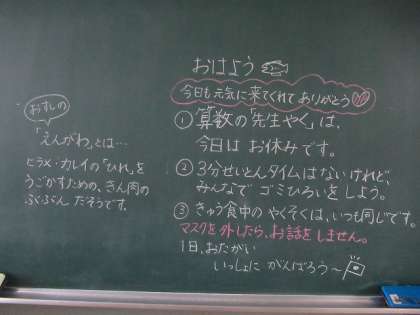 おはよう
今日も元気に来てくれてありがとう
① 算数の「先生やく」は、
今日は お休みです。
② 3分せいとんタイムはないけれど、
みんなで ゴミひろいをしよう。
③ きゅう食中の やくそくは、いつも同じです。
マスクを外したら、お話をしません。
1日、おたがい
いっしょに がんばろう〜
おすしの
「えんがわ」とは…
ヒラメ・カレイの「ひれ」を
うごかすための、きん肉の
ぶぶん だそうです。